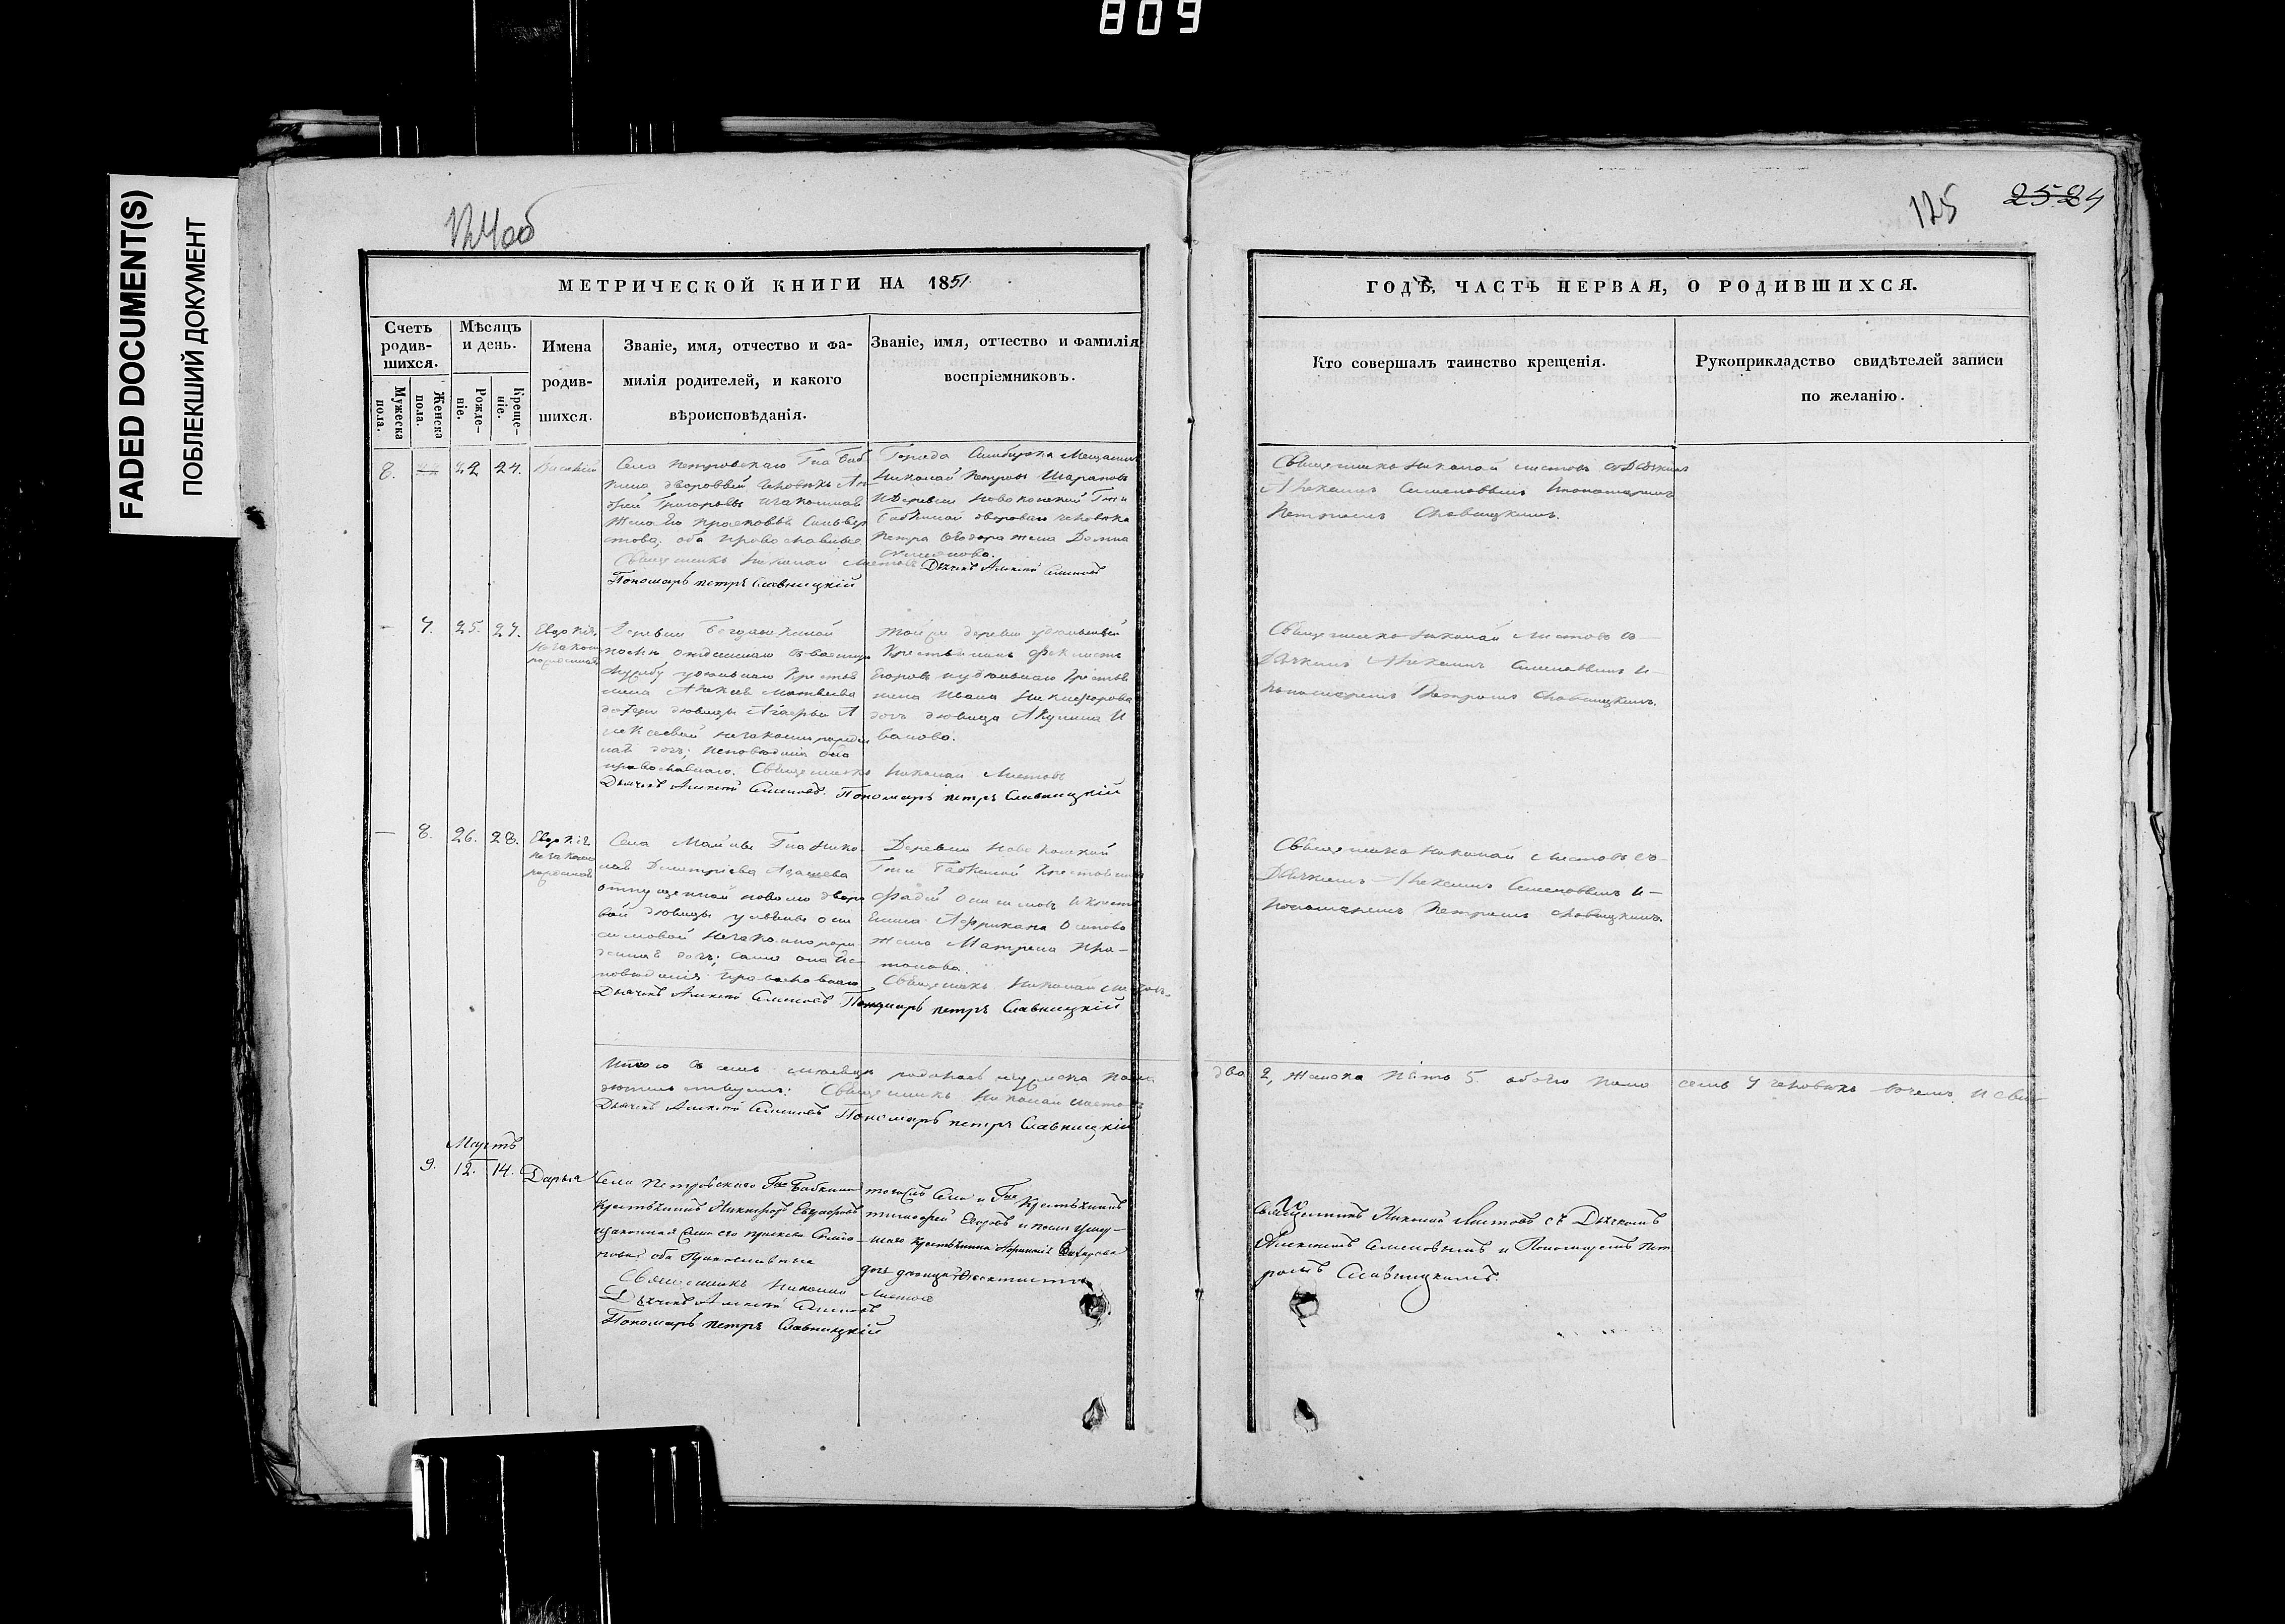 809
FADED DOCUMENT(S)
ПОБЛЕКШИЙ ДОКУМЕНТ
124об
125
25. 24
МЕТРИЧЕСКОЙ КНИГИ НА 1851.
ГОДЪ, ЧАСТЬ ПЕРВАЯ, О РОДИВШИХСЯ.
Счетъ родив-шихся.
Мужеска пола.
Женска пола.
Мѣсяцъ и день.
Рожде-ніе.
Креще-ніе.
Имена
родив-
шихся.
Званіе, имя, отчество и фа-
милія родителей, и какого
вѣроисповѣданія.
Званіе, имя, отчество и фамилія
воспріемниковъ.
Кто совершалъ таинство крещенія.
Рукоприкладство свидѣтелей записи
по желанію.
8. 22 24. Василій
Села Петровскаго Гна Баб
кина дворовый человѣкъ Ан
дрей Григорьевъ и законная
жена его Прасковья Сильвер
стова; оба православные
Священникъ Николай Листовъ Дьячекъ Алексѣй Семеновъ
Пономарь Петръ Славницкій
Города Симбирска Мещанинъ
Николай Петровъ Шараповъ
и деревни
Бабкиной двороваго человѣка
Петра Ѳедора жена Домна
Священникъ Николай Листовъ съ Дьячкомъ
Алексѣемъ Семеновымъ и пономаремъ
Петромъ Славницкимъ.
— 7. 25. 27. Евдокія
незакон
норожденная
Деревни
отданнаго въ военную
службу удѣльнаго крестья
нина Алексѣя Матвѣева
дочери дѣвицы А
лексѣевой незаконнорожден
ная дочь; исповѣданія она
православнаго. Священникъ Николай Листовъ
Дьячекъ Алексѣй Семеновъ. Пономарь Петръ Славницкій
той же деревни удѣльный
крестьянинъ Феклистъ
Егоровъ и удѣльнаго крестья
нина Ивана Никифорова
дочь дѣвица Акулина И
ванова.
Священникъ Николай Листовъ съ —
Дьячкомъ Алексѣемъ Семеновымъ и —
Пономаремъ Петромъ Славницкимъ.
— 8. 26. 28. Евдокія
незаконно
рожденная
Села Майны Гна Нико
лая Димитріева
отпущенной на волю дворо
вой дѣвицы Ульяны Они
симовой незаконнорож
денная дочь; сама она ис
повѣданія православнаго
Дьячекъ Алексѣй Семеновъ Пономарь Петръ Славницкій
Деревни
Гжи Бабкиной Крестьянинъ
Фадей Онисимовъ и крестья
нина Африкана Осипова
жена Матрена Пла-
тонова.
Священникъ Николай Листовъ.
Священникъ Николай Листовъ съ —
Дьячкомъ Алексѣемъ Семеновымъ и —
Пономаремъ Петромъ Славницкимъ.
Итого въ семъ мѣсяцѣ родилось мужеска пола два 2, женска пять 5. обоего пола семь 7 человѣкъ въ чемъ и сви
дѣтельствуемъ: Священникъ Николай Листовъ
Дьячекъ Алексѣй Семеновъ Пономарь Петръ Славницкій
Мартъ
9. 12. 14. Дарья
Села Петровскаго Гна Бабкина
Крестьянинъ Никифоръ
и законная жена его
оба Православные
Священникъ Николай Листовъ
Дьячекъ Алексѣй Семеновъ
Пономарь Петръ Славницкій
тогожъ Села и Гна Крестьянинъ
Тимофей Егоровъ и
шаго Крестьянина Захарова
дочь дѣвица Феоктиста
Священникъ Николай Листовъ съ Дьячкомъ
Алексѣемъ Семеновымъ и Пономаремъ Пет
ромъ Славницкимъ.